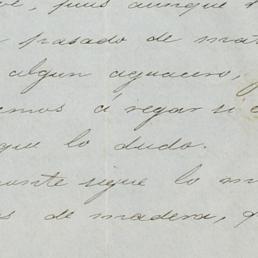 pues aunque
pasado de
algun aguacero,
emos á regar si
que lo dudo.
sigue lo
de madera,